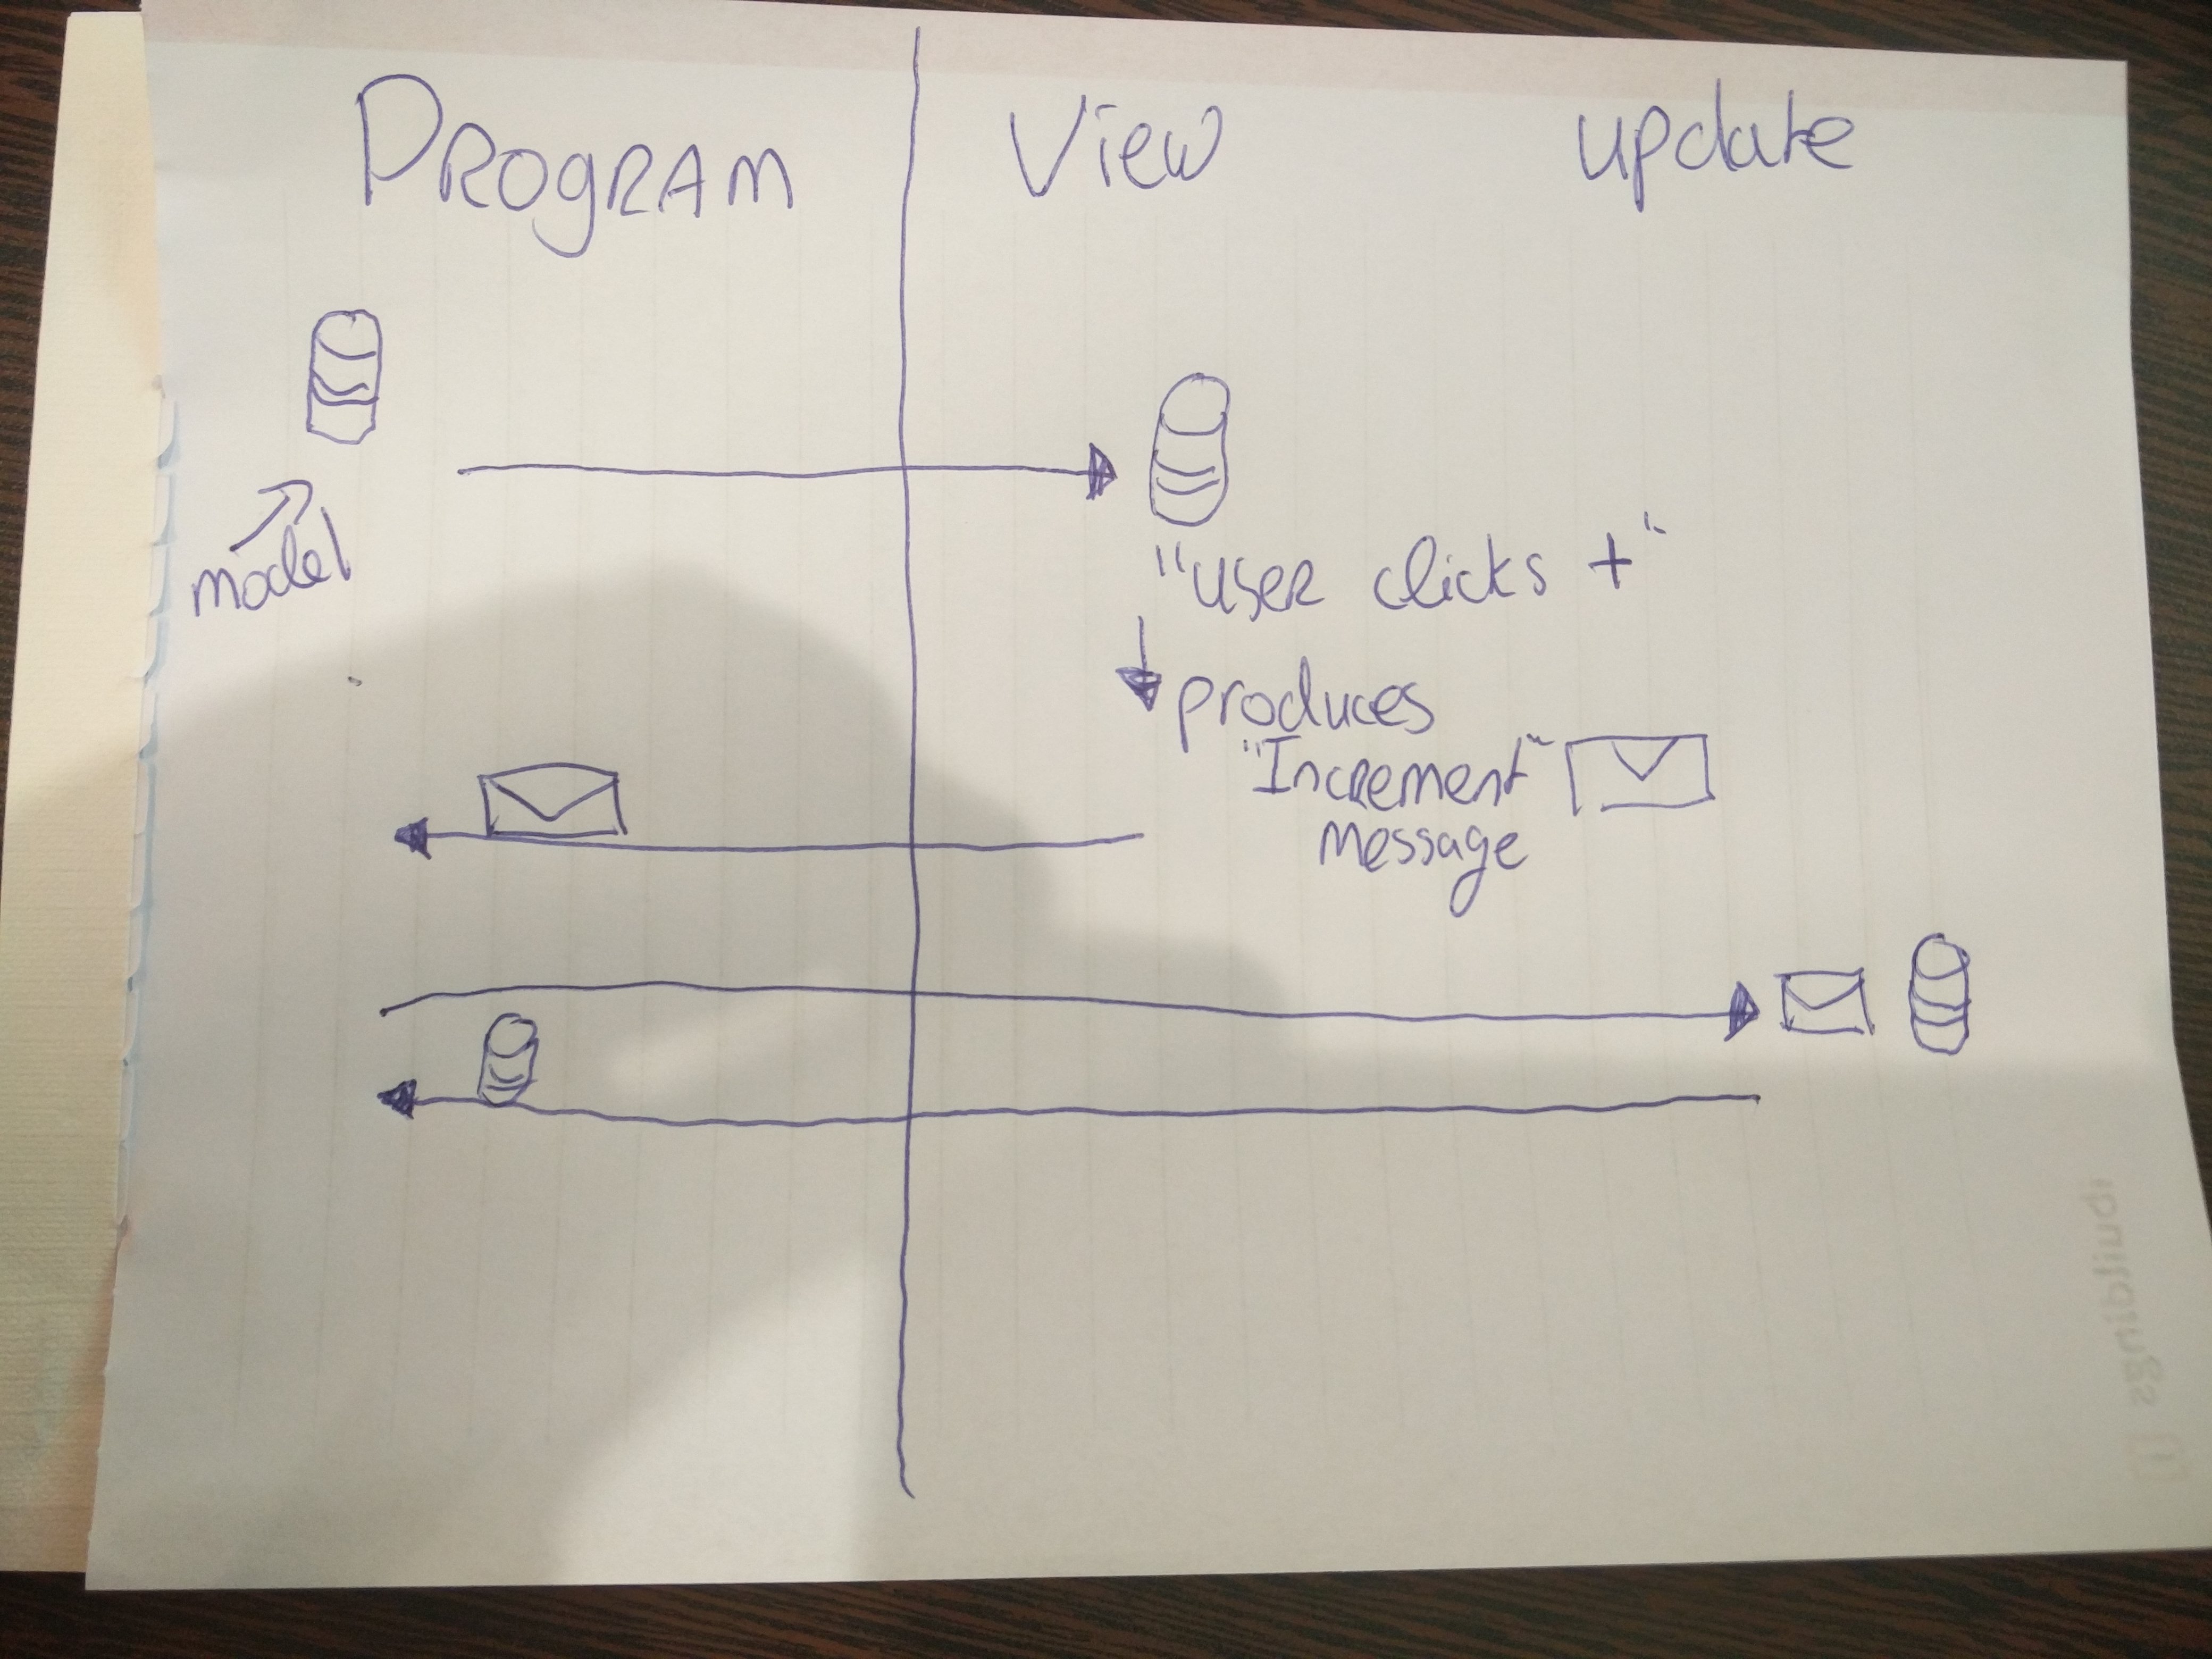 PROGRAM View update
model
"user clicks +"
produces
"Increment"
Message
ibuildings